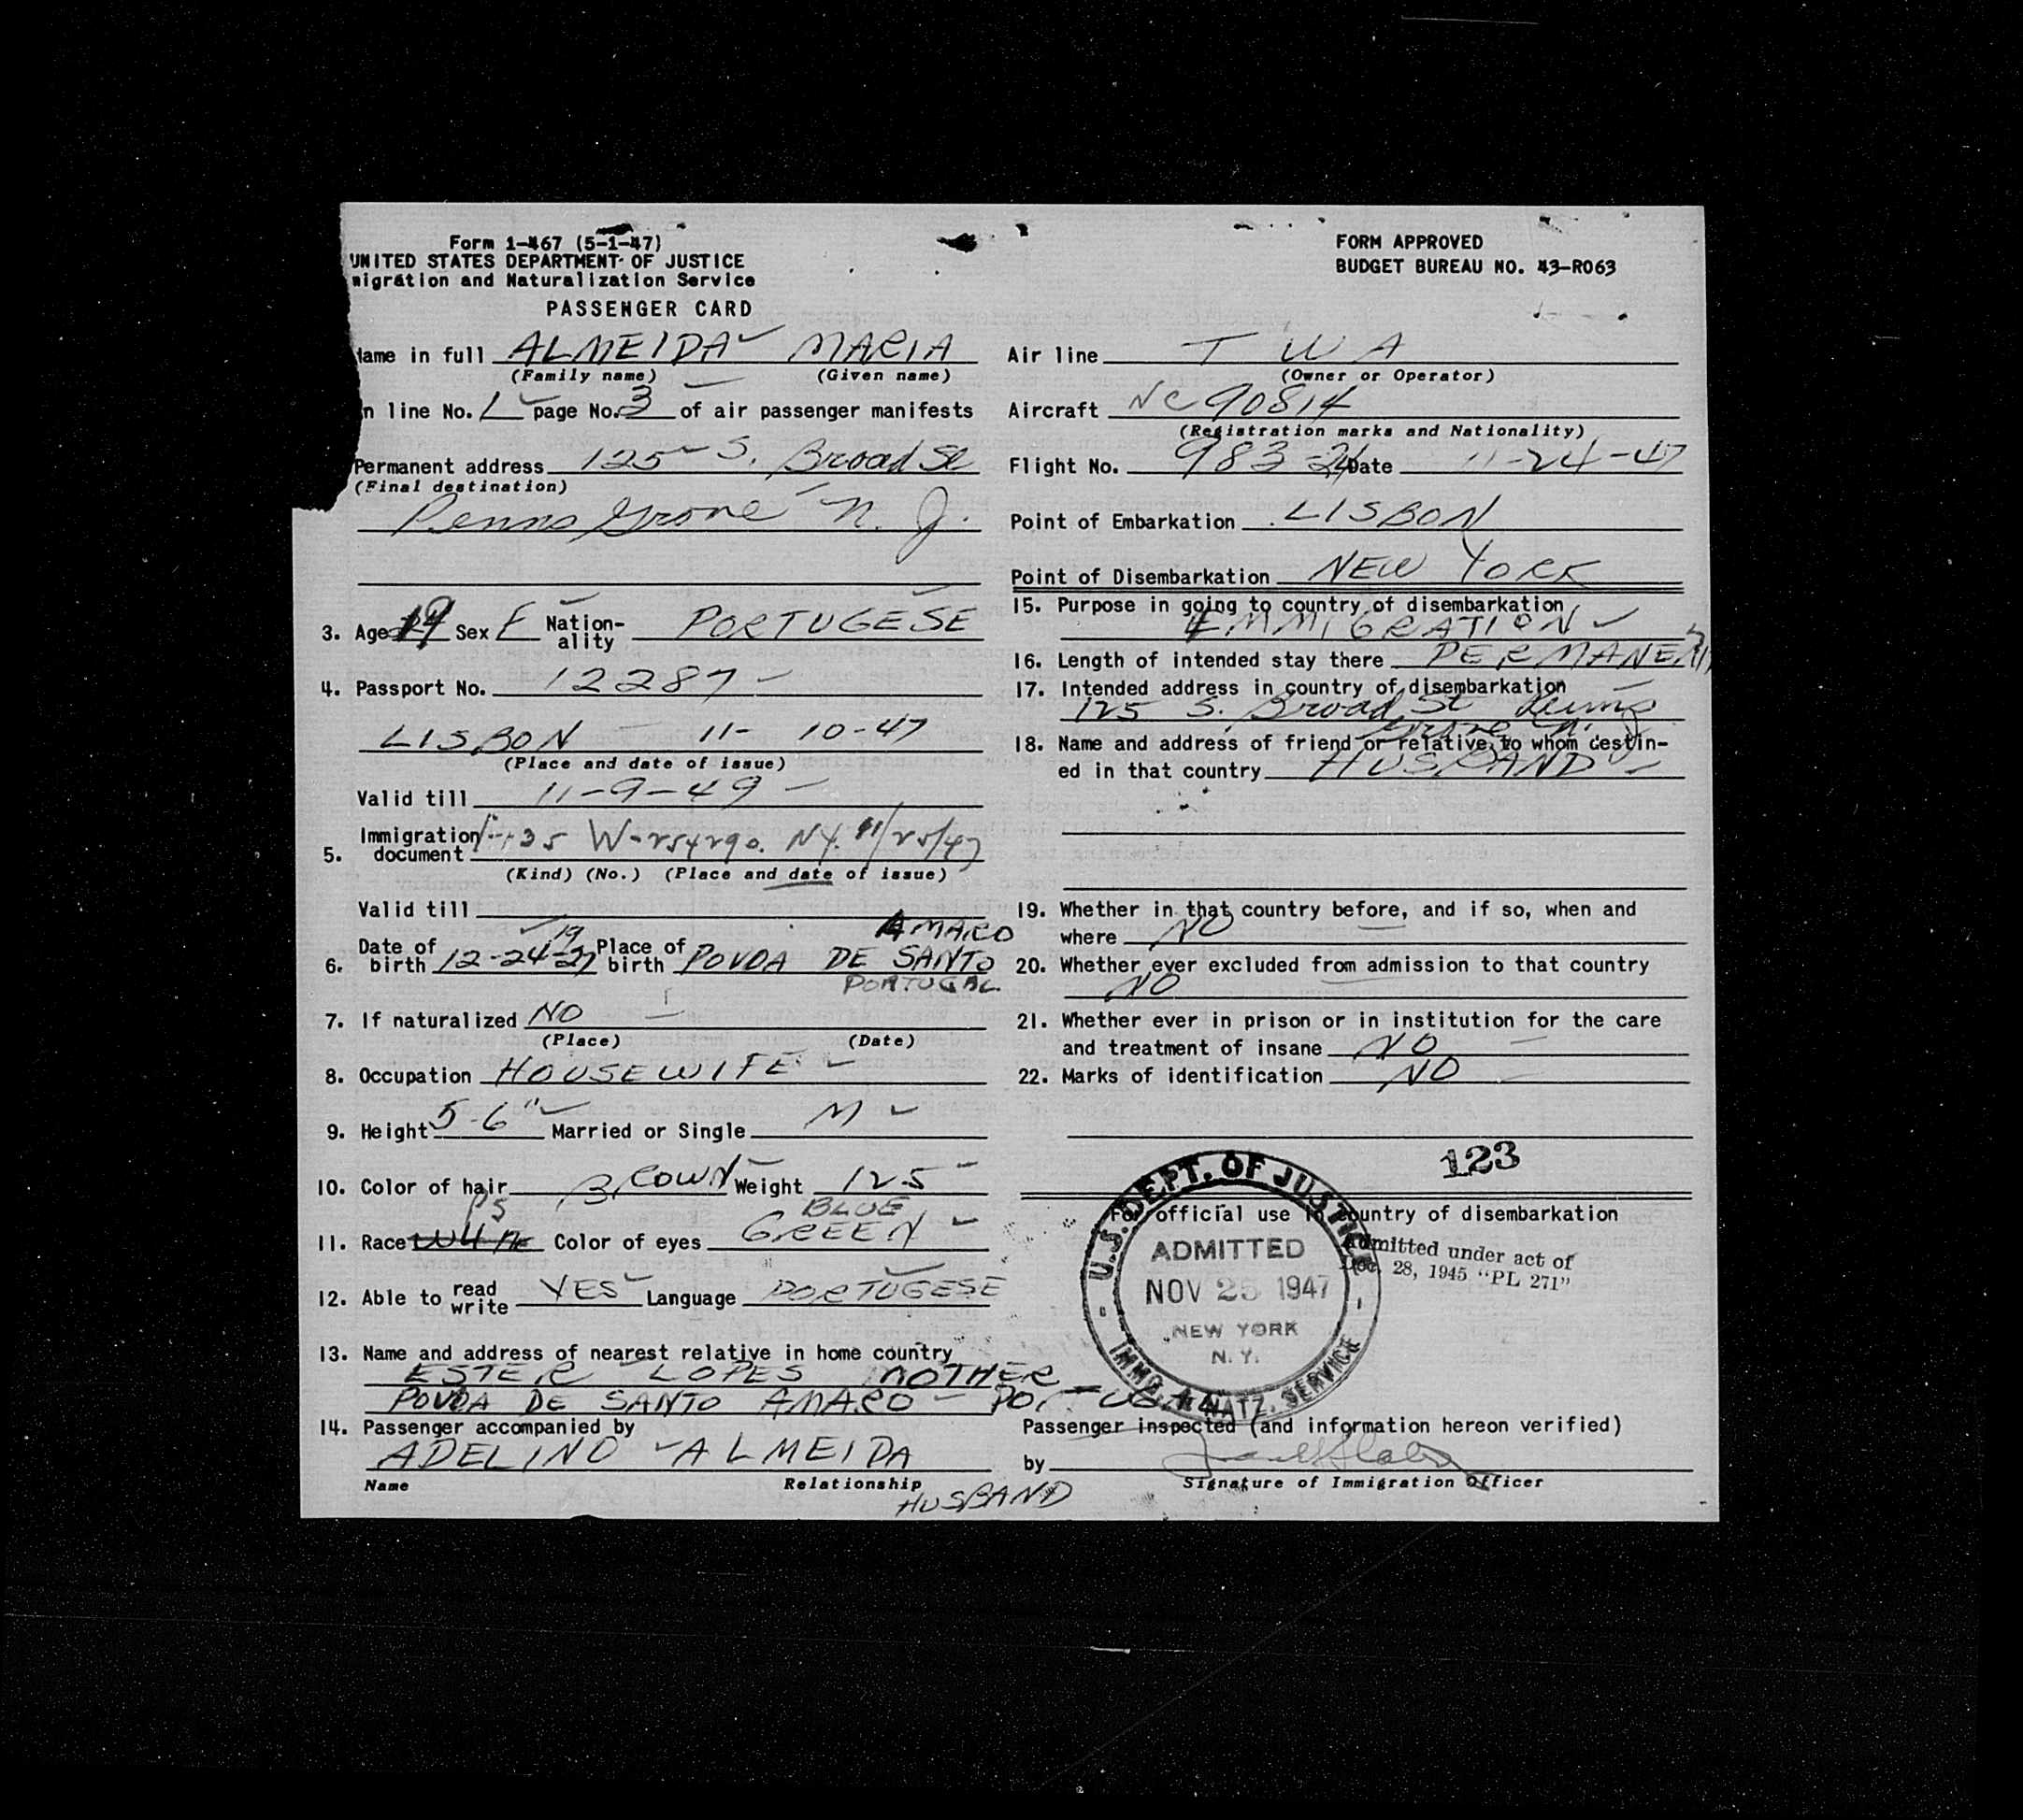 Form 1-467 (5-1-47)
UNITED STATES DEPARTMENT OF JUSTICE
migration and Naturalization Service
PASSENGER CARD
FORM APPROVED
BUDGET BUREAU NO. 43-R063
Name in full ALMEIDA MARIA
(Family name) (Given name)
n line No. 1 page No. 3 of air passenger manifests
Permanent address 125 S. Broad St
(Final destination)
Penns Grove N. J.
3. Age 19 Sex F Nation-ality PORTUGESE
4. Passport No. 12287
LISBON 11-10-47
(Place and date of issue)
Valid till 11-9-49
5. Immigration document N.Y. 11/25/47
(Kind) (No.) (Place and date of issue)
Valid till
AMARO
6. Date of birth 12-24-1927 Place of birth POVOA DE SANTO
PORTUGAL
7. If naturalized NO
(Place) (Date)
8. Occupation HOUSEWIFE
9. Height 5-6" Married or Single M
10. Color of hair BROWN Weight 125
PS BLUE
11. Race Color of eyes GREEN
12. Able to read write YES Language PORTUGESE
13. Name and address of nearest relative in home country
ESTER LOPES MOTHER
POVOA DE SANTO AMARO - PORTUGAL
14. Passenger accompanied by
ADELINO ALMEIDA
Name Relationship
HUSBAND
Air line TWA
(Owner or Operator)
Aircraft NC 90814
(Registration marks and Nationality)
Flight No. 983-24 Date 11-24-47
Point of Embarkation LISBON
Point of Disembarkation NEW YORK
15. Purpose in going to country of disembarkation
EMMIGRATION
16. Length of intended stay there PERMANENT
17. Intended address in country of disembarkation
125 S. Broad St Penns
Grove N. J.
18. Name and address of friend or relative to whom destin-
ed in that country HUSBAND
19. Whether in that country before, and if so, when and
where NO
20. Whether ever excluded from admission to that country
NO
21. Whether ever in prison or in institution for the care
and treatment of insane NO
22. Marks of identification NO
123
For official use in country of disembarkation
U.S. DEPT. OF JUSTICE
ADMITTED
NOV 25 1947
NEW YORK
N. Y.
IMMG. & NATZ. SERVICE
Admitted under act of
Dec. 28, 1945 "PL 271"
Passenger inspected (and information hereon verified)
by
Signature of Immigration Officer